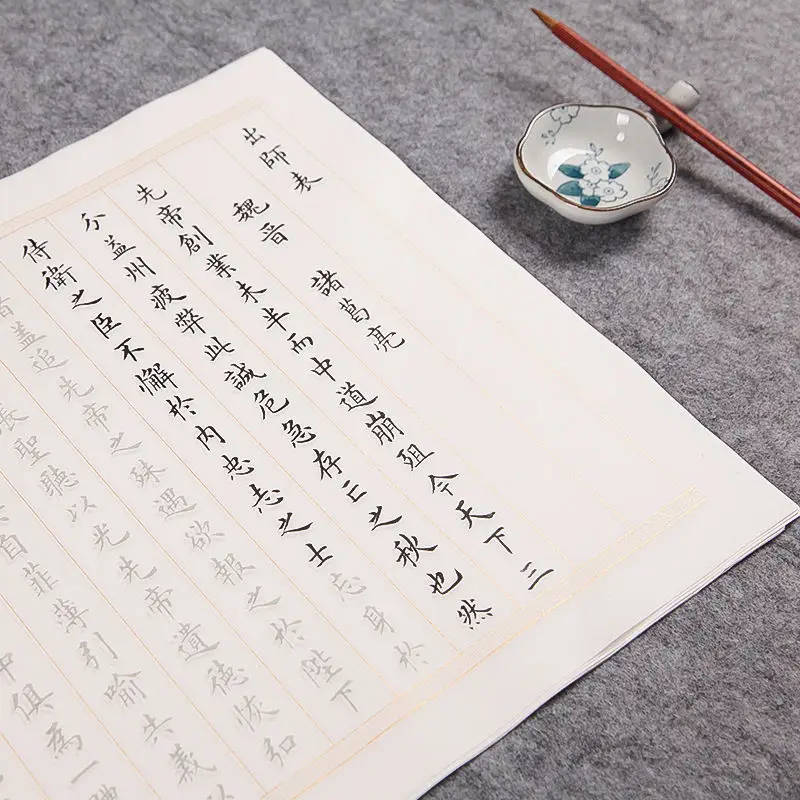 出師表
魏晉 諸葛亮
先帝創業未半而中道崩殂今天下三
分益州疲弊此誠危急存亡之秋也然
侍衛之臣不懈於內忠志之士忘身於
者蓋追先帝之殊遇欲報之於陛下
張聖聽以光先帝遺德恢弘
自菲薄引喻失義以
中俱為一體